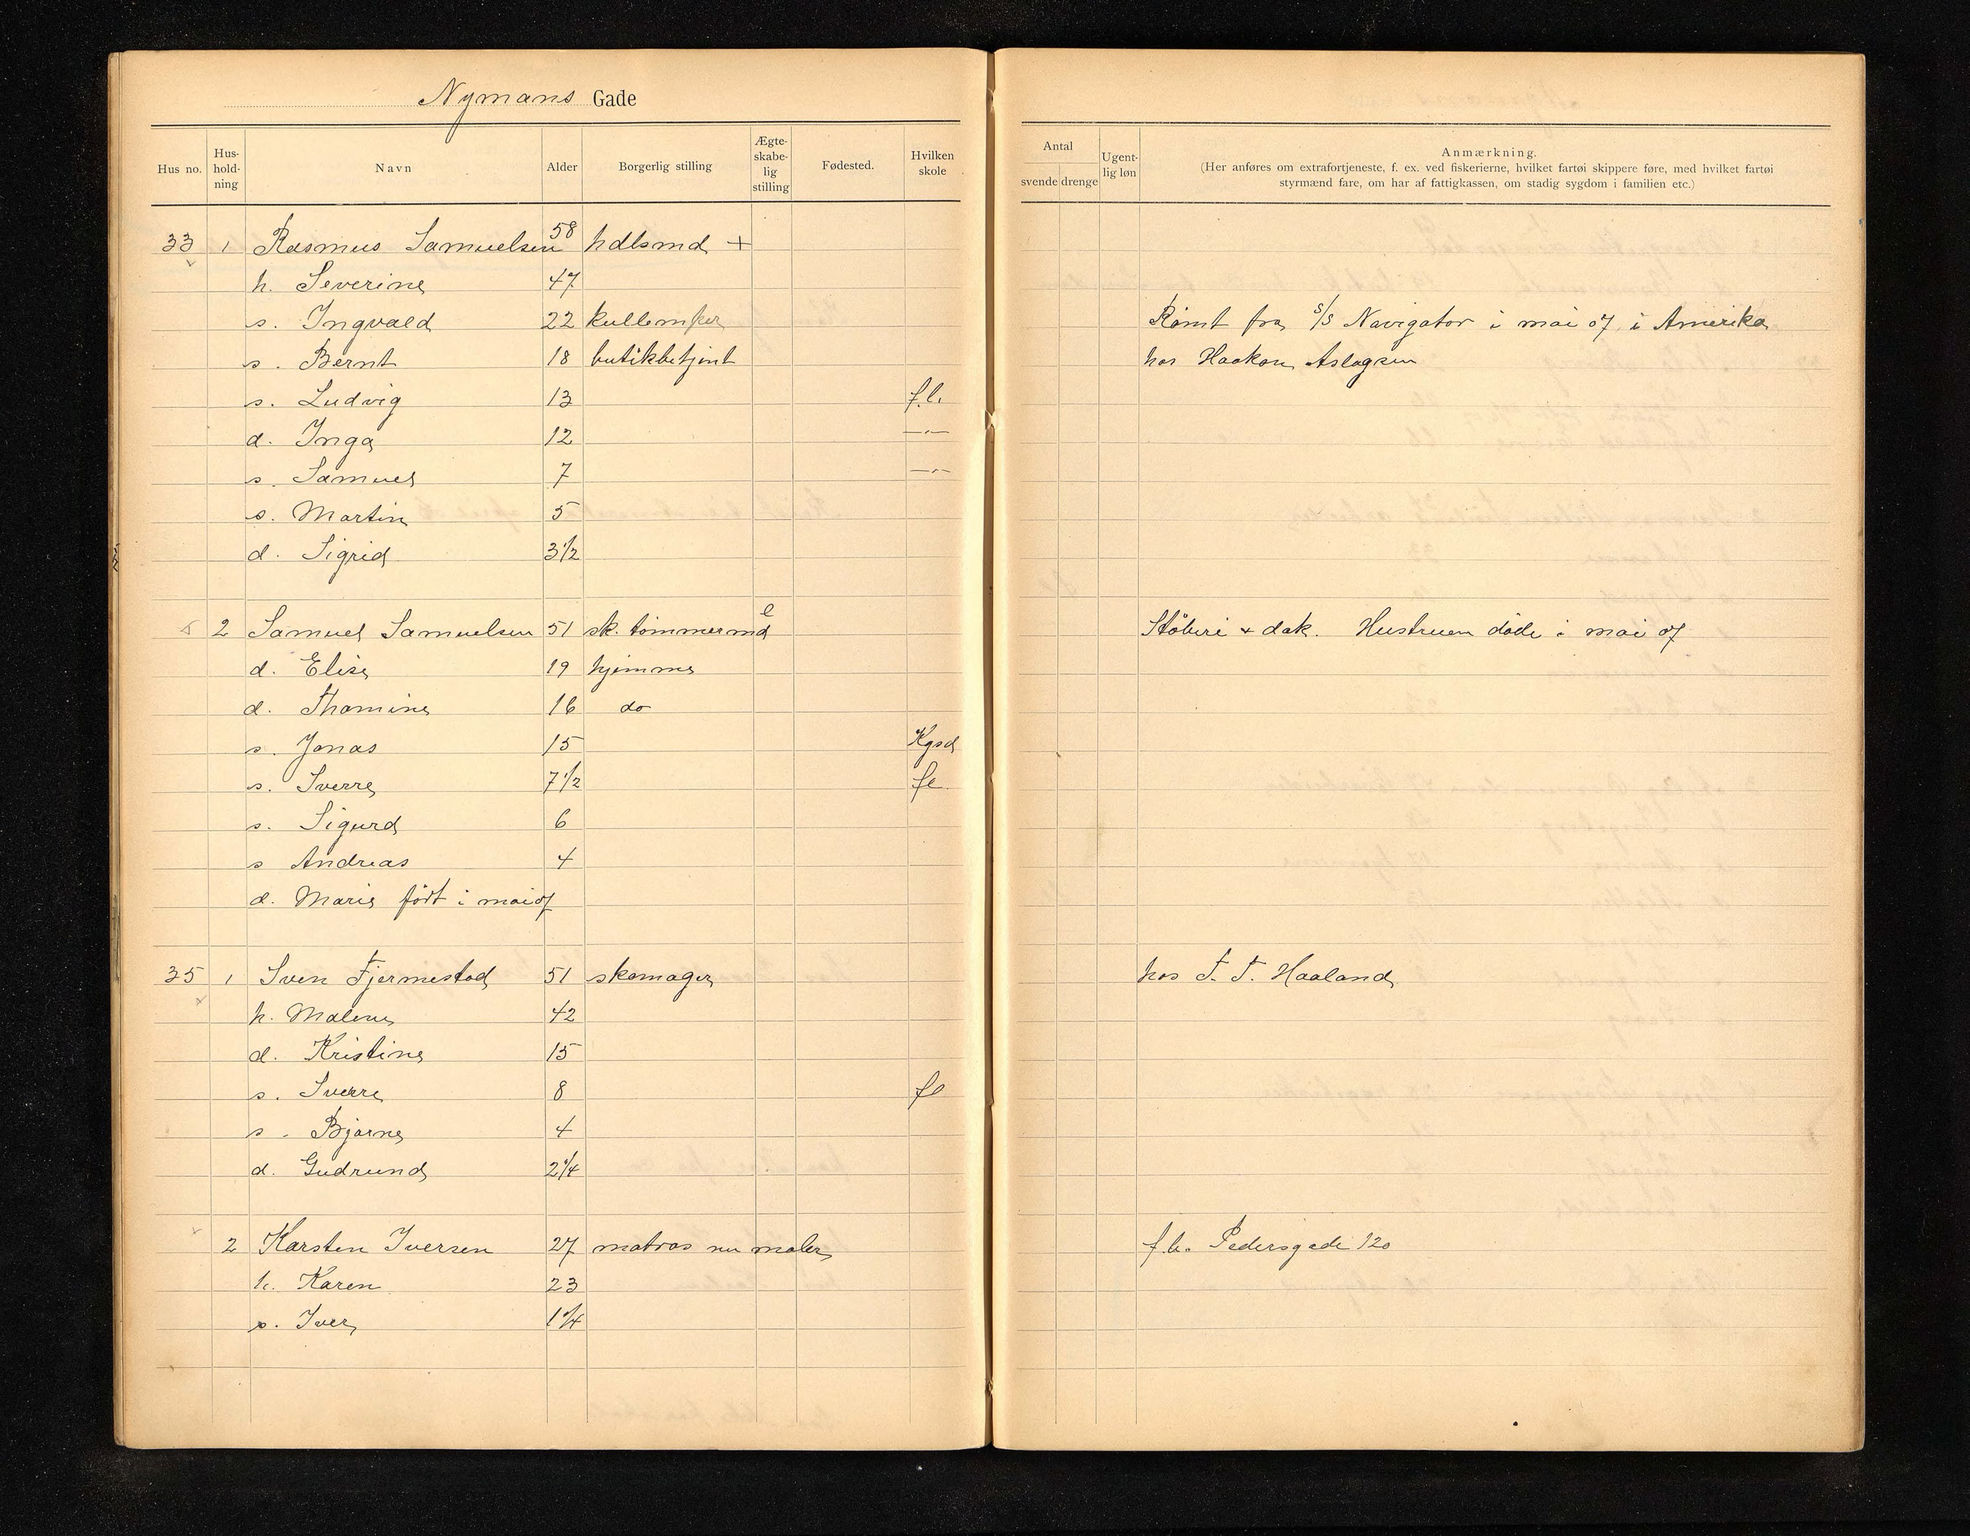 Nymans Gade
Hus no. Hus-holdning Navn Alder Borgerlig stilling Ægte-skabe-lig stilling Fødested. Hvilken skole
Antal svende drenge Ugent-lig løn Anmærkning.
(Her anføres om extrafortjeneste, f. ex. ved fiskerierne, hvilket fartøi skippere føre, med hvilket fartøi
styrmænd fare, om har af fattigkassen, om stadig sygdom i familien etc.)
33 1 Rasmus Samuelsen 58 hdlsmd +
h. Severine 47
s. Ingvald 22 kullemper Rømt fra s/s Navigator i mai 07 i Amerika
s. Bernt 18 butikbetjent hos Haakon Aslagsen
s. Ludvig 13 f.l.
d. Inga 12 —"—
s. Samuel 7 —"—
s. Martin 5
d. Sigrid 3 1/2
2 Samuel Samuelsen 51 sk. tømmermd e Støberi & dok. Hustruen døde i mai 07
d. Elise 19 hjemme
d. Thomine 16 do
s. Jonas 15 Kgsd
s. Sverre 7 1/2 fl.
s. Sigurd 6
s Andreas 4
d. Marie født i mai 07
35 1 Sven Fjermestad 51 skomager hos T. T. Haaland
h. Malene 42
d. Kristine 15
s. Sverre 8 fl
s. Bjarne 4
d. Gudrund 2 1/4
2 Karsten Iversen 27 matros nu maler f.b. Pedersgade 120
h. Karen 23
s. Iver 1 1/4